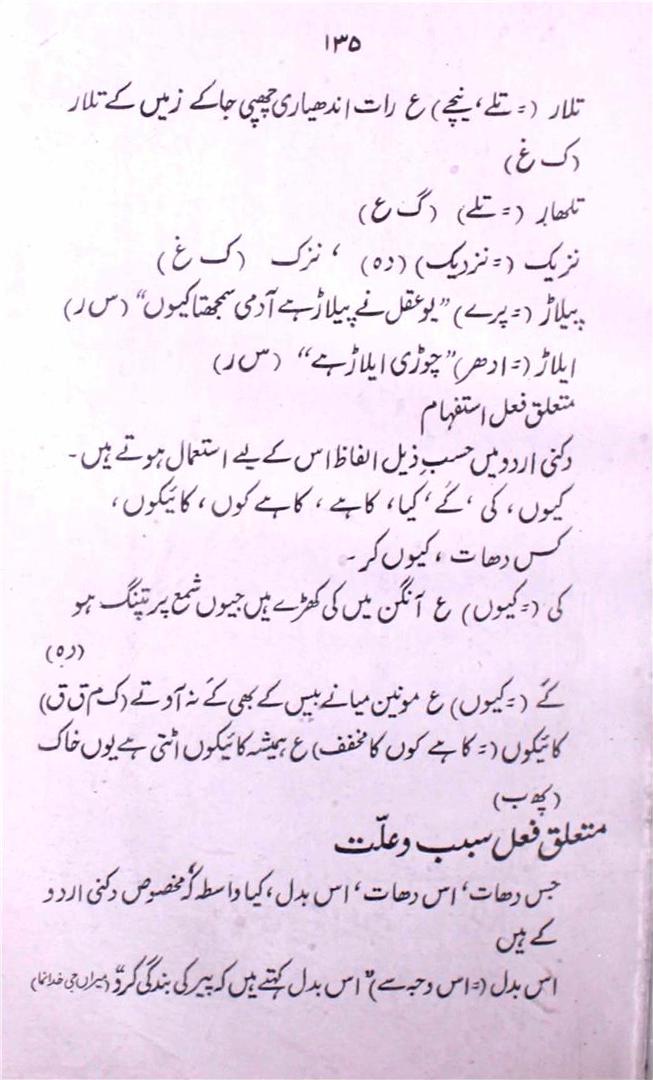 ۱۳۵
تلار (= تلے، نیچے) ع رات اندھیاری چھپی جا کے زمیں کے تلار
(ک غ)
تلھار (= تلے) (گ ع)
نزیک (= نزدیک) (دہ) ، نزک (ک غ)
پیلاڑ (= پرے) "یو عقل نے پیلاڑ ہے آدمی سمجھتا کیوں" (س ر)
ایلاڑ (= ادھر) "چوڑی ایلاڑ ہے" (س ر)
متعلق فعل استفہام
دکنی اردو میں حسب ذیل الفاظ اس کے لیے استعمال ہوتے ہیں ۔
کیوں ، کی ، کے ، کیا ، کاہے ، کاہے کوں ، کائیکوں ،
کس دھات ، کیوں کر ۔
کی (= کیوں) ع آنگن میں کی کھڑے ہیں جیوں شمع پر پتنگ ہو
(دہ)
کے (= کیوں) ع مونین میانے بیس کے بھی کے نہ آدتے (ک م ق ق)
کائیکوں (= کاہے کوں کا مخفف) ع ہمیشہ کائیکوں اٹتی ہے یوں خاک
(پھ ب)
متعلق فعل سبب و علّت
جس دھات ، اس دھات ، اس بدل ، کیا واسطہ کہ مخصوص دکنی اردو
کے ہیں
اس بدل (= اس وجہ سے) "اس بدل کہتے ہیں کہ پیر کی بندگی کرو" (میراں جی خدا نما)